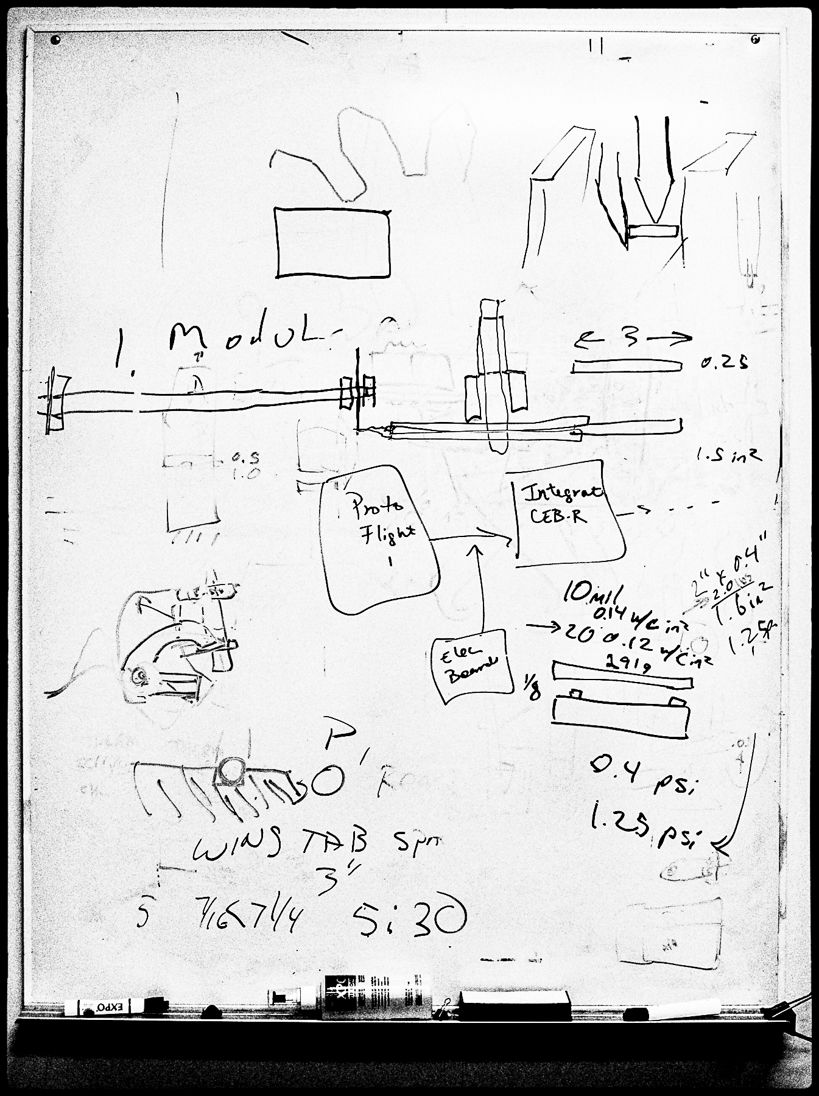 1. Modul
← 3 →
0.25
0.5
1.0
1.5 in²
Proto
Flight
1
Integrat
CEB-R
2" x 0.4"
1.6 in²
10 mil
0.14 w/c in²
→ 20 0.12 w/c in²
291g
Elec
Board
1/8
P
0'
0.4 psi
1.25 psi
WING TAB
3"
5 7/16 5:30
EXPO